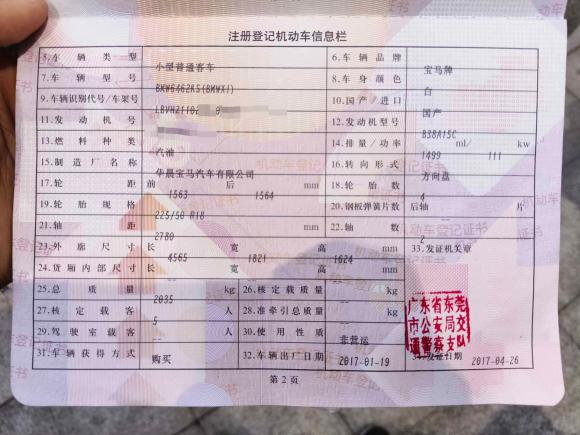 注册登记机动车信息栏
5.车辆类型 小型普通客车 6.车辆品牌 宝马牌
7.车辆型号 BMW6462KS(BMWX1) 8.车身颜色 白
9.车辆识别代号/车架号 10.国产/进口 国产
11.发动机号 12.发动机型号 B38A15C
13.燃料种类 汽油 14.排量/功率 1499 ml/ 111 kw
15.制造厂名称 华晨宝马汽车有限公司 16.转向形式 方向盘
17.轮距 前 1563 后 1564 mm 18.轮胎数 4
19.轮胎规格 225/50 R18 20.钢板弹簧片数 后轴 -- 片
21.轴距 2780 mm 22.轴数 2
23.外廓尺寸 长 4565 宽 1821 高 1624 mm 33.发证机关章
24.货厢内部尺寸 长 -- 宽 -- 高 -- mm
25.总质量 2035 kg 26.核定载质量 -- kg
27.核定载客 5 人 28.准牵引总质量 -- kg
29.驾驶室载客 -- 人 30.使用性质 非营运
31.车辆获得方式 购买 32.车辆出厂日期 2017-01-19 34.发证日期 2017-04-26
广东省东莞
市公安局交
通警察支队
第2页